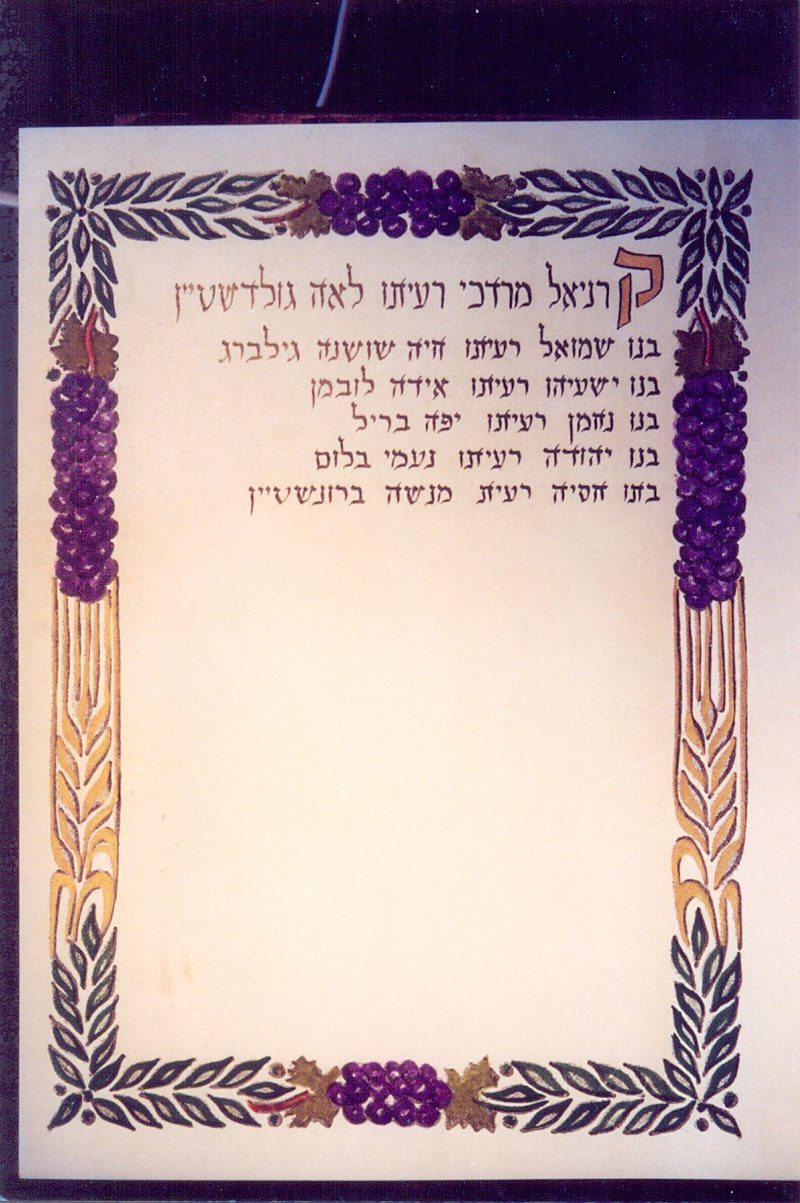 קרניאל מרדכי רעיתו לאה גולדשטיין
בנו שמואל רעיתו חיה שושנה גילברג
בנו ישעיהו רעיתו אידה לובמן
בנו נחמן רעיתו יפה בריל
בנו יהודה רעיתו נעמי בלום
בתו חסיה רעית מנשה ברונשטיין